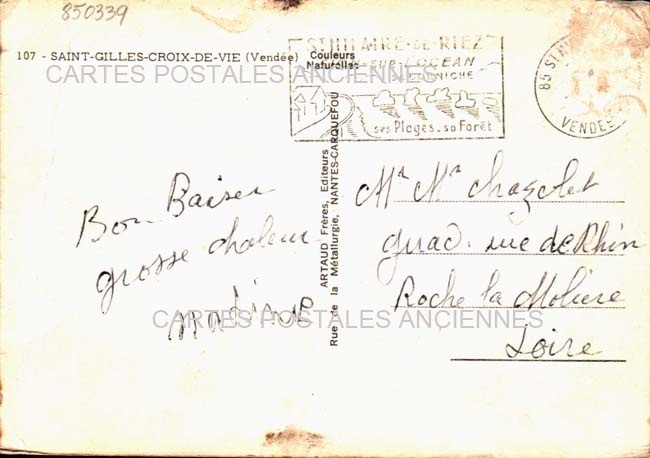 850339
107 - SAINT-GILLES-CROIX-DE-VIE (Vendée)
Couleurs
Naturelles
CARTES POSTALES ANCIENNES
ST HILAIRE-DE-RIEZ
SUR L'OCEAN
CORNICHE
ses Plages - sa Forêt
85 ST H
VENDEE
ARTAUD Frères, Editeurs
Rue de la Métallurgie, NANTES-CARQUEFOU
Bon Baiser
grosse chaleur
nadine
Mr Mr Chazelet
rue de Rhin
Roche la Molière
Loire
CARTES POSTALES ANCIENNES